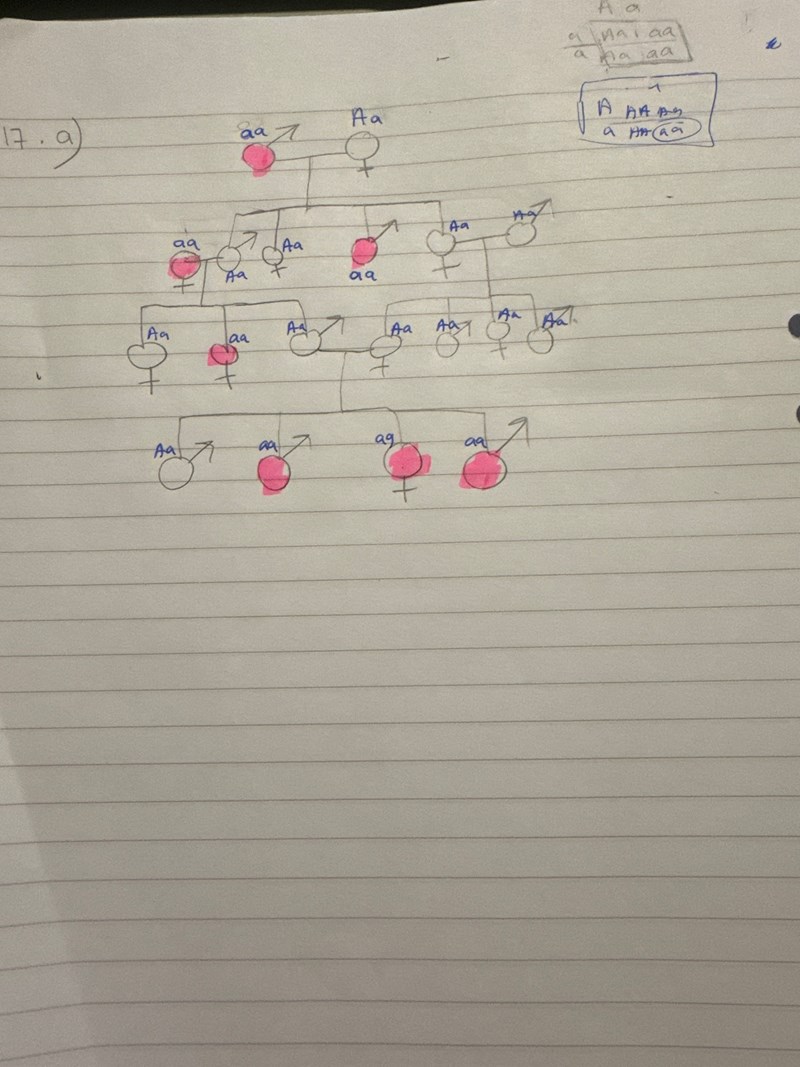 A a
a Aa aa
a Aa aa
A AA Aa
a AA aa
17. a)
aa Aa
aa Aa Aa aa Aa Aa
Aa aa Aa Aa Aa Aa Aa
Aa aa aa aa